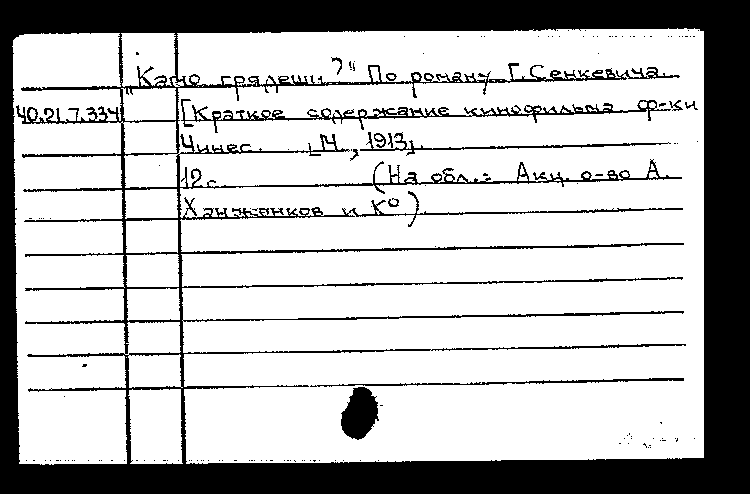 „Камо грядеши?" По роману Г. Сенкевича.
40.21.7.334 [Краткое содержание кинофильма ф-ки
Чинес. [М, 1913].
12с. (На обл.: Акц. о-во А.
Ханжонков и К⁰).